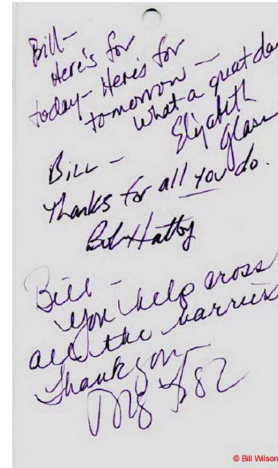 Bill-
Here's for
today - Here's for
tomorrow -
what a great day
Elizabeth
Glaser
Bill -
Thanks for all you do.
Bob Hattoy
Bill -
You help cross
all the barriers
Thank you -
© Bill Wilson